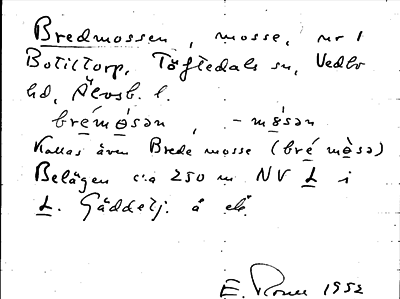 Bredmossen, mosse, nr 1
Botiltorp, Töftedals sn, Vedbo
hd, Älvsb. l.
brémo̱sən, -mo̱sən
Kallas även Brede mosse (bré mo̱sə)
Belägen c:a 250 m NV L i
L. Gäddetj. å ek.
E. 1952